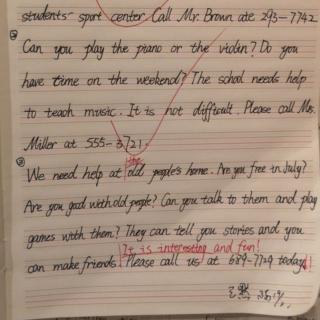 students- sport center Call Mr. Brown ate 293-7742
② Can you play the piano or the violin? Do you
have time on the weekend? The school needs help
to teach music. It is not difficult. Please call Mrs.
Miller at 555-3721.
the
③ We need help at old people's home. Are you free in July?
Are you good with old people? Can you talk to them and play
games with them? They can tell you stories and you
It is interesting and fun!
can make friends. Please call us at 689-7729 today!!